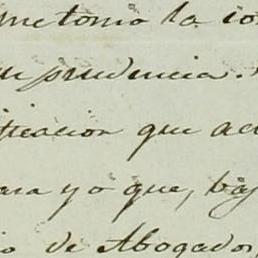 metonia la co
su prudencia.
tificacion que ac
ara yo que, baj
io de Abogados,